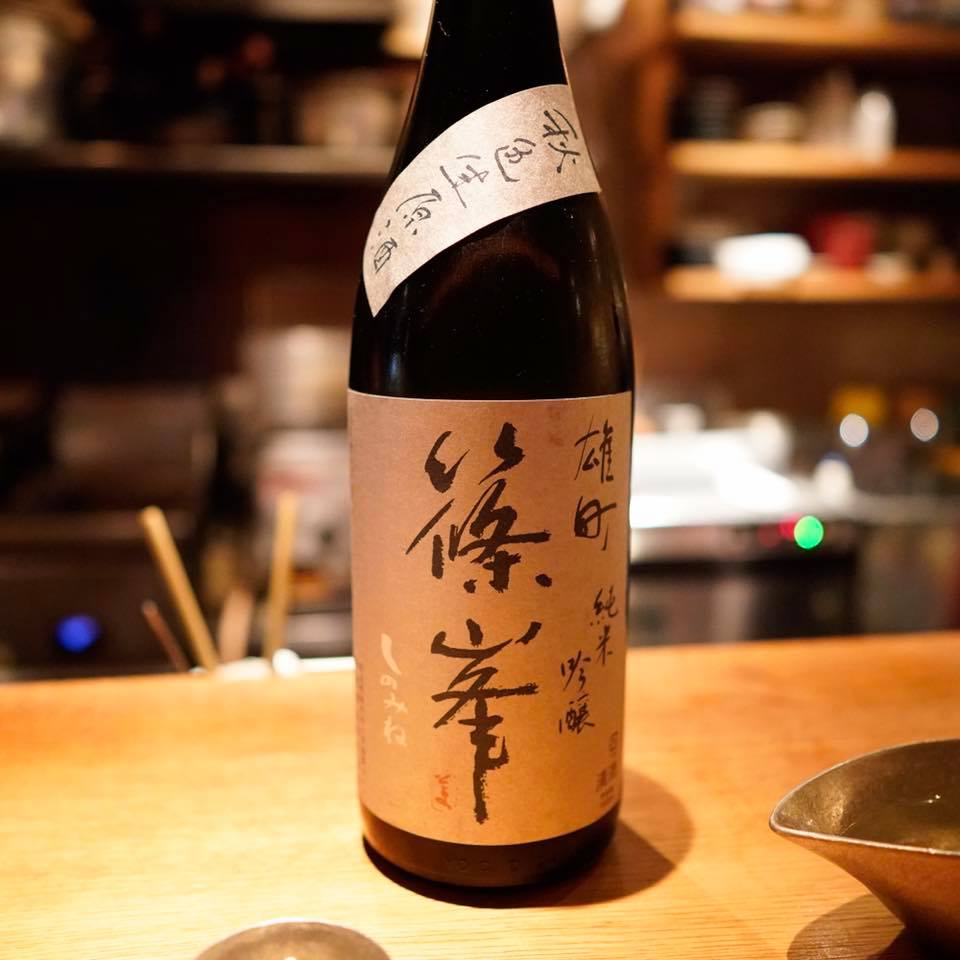 秋色生原酒
雄町 純米 吟醸
篠峯
しのみね
清酒